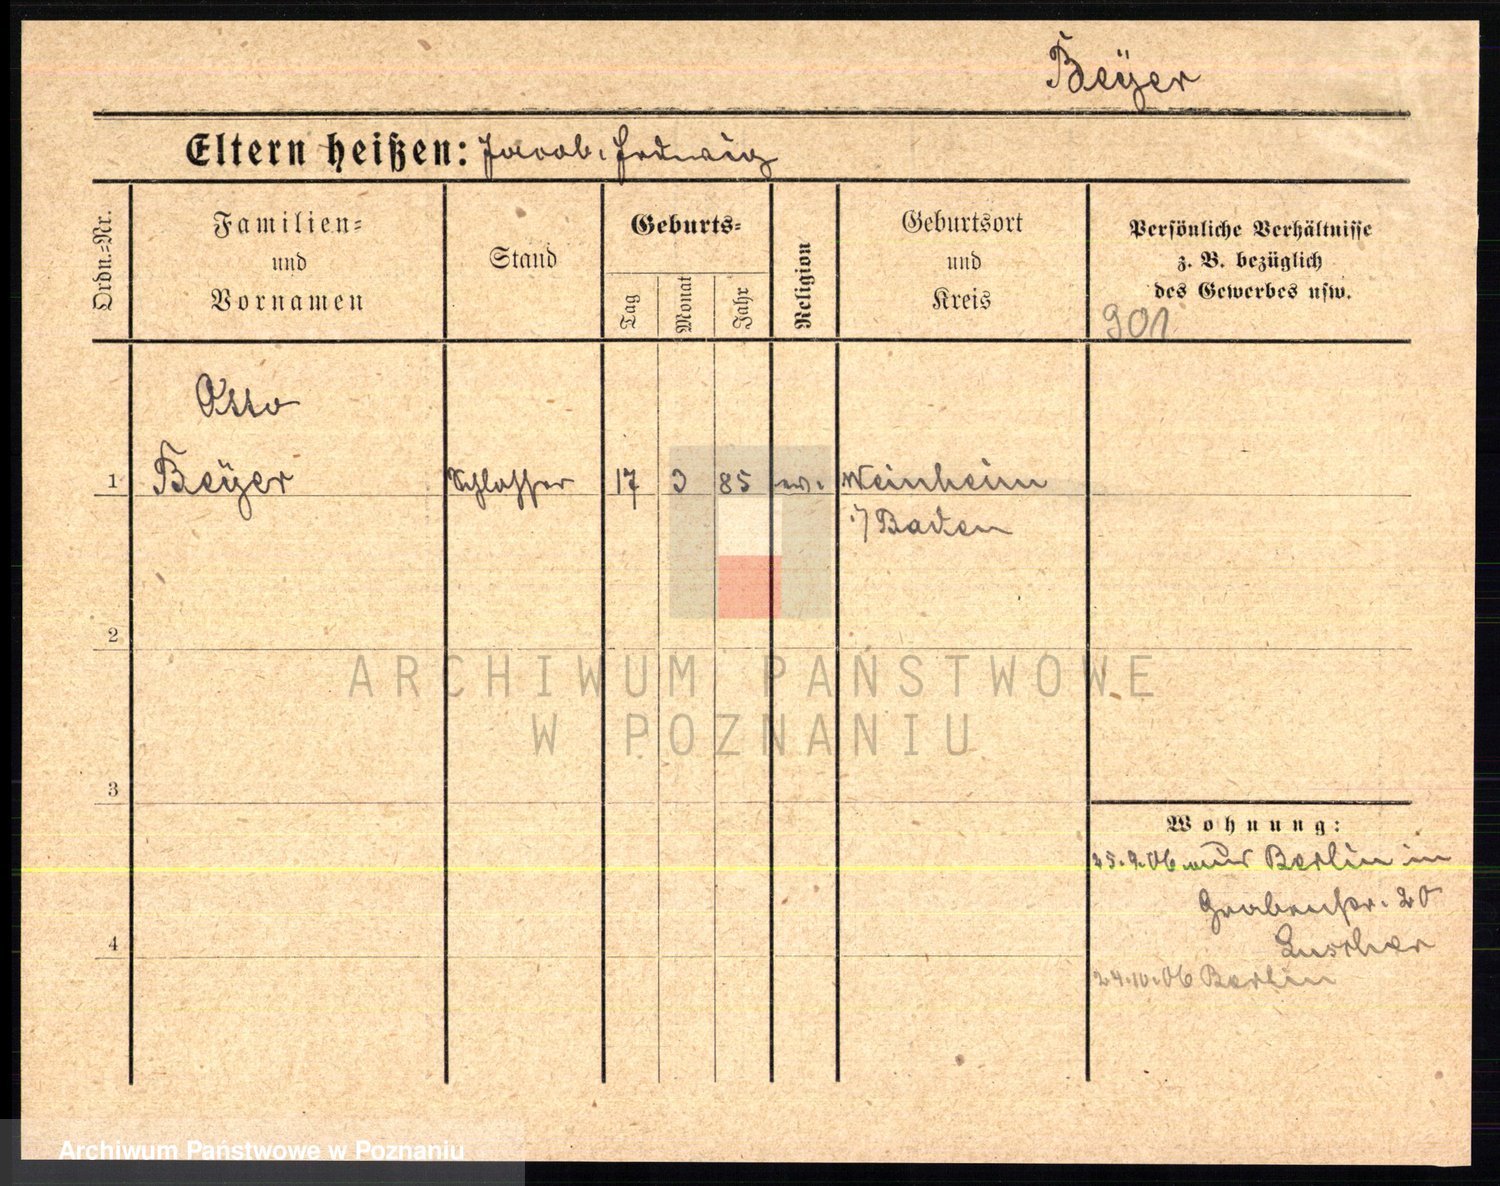 Beÿer
Eltern heißen: Jacob. Hedwig
Ordn.-Nr.
Familien-
und
Vornamen
Stand
Geburts-
Tag
Monat
Jahr
Religion
Geburtsort
und
Kreis
Persönliche Verhältnisse
z. B. bezüglich
des Gewerbes usw.
901
Otto
1 Beÿer Schlosser 17 3 85 ev. Weinheim
i/ Baden
2
3
4
Wohnung:
25.9.06 aus Berlin in
Grabenstr. 20
24.10.06 Berlin
ARCHIWUM PAŃSTWOWE
W POZNANIU
Archiwum Państwowe w Poznaniu